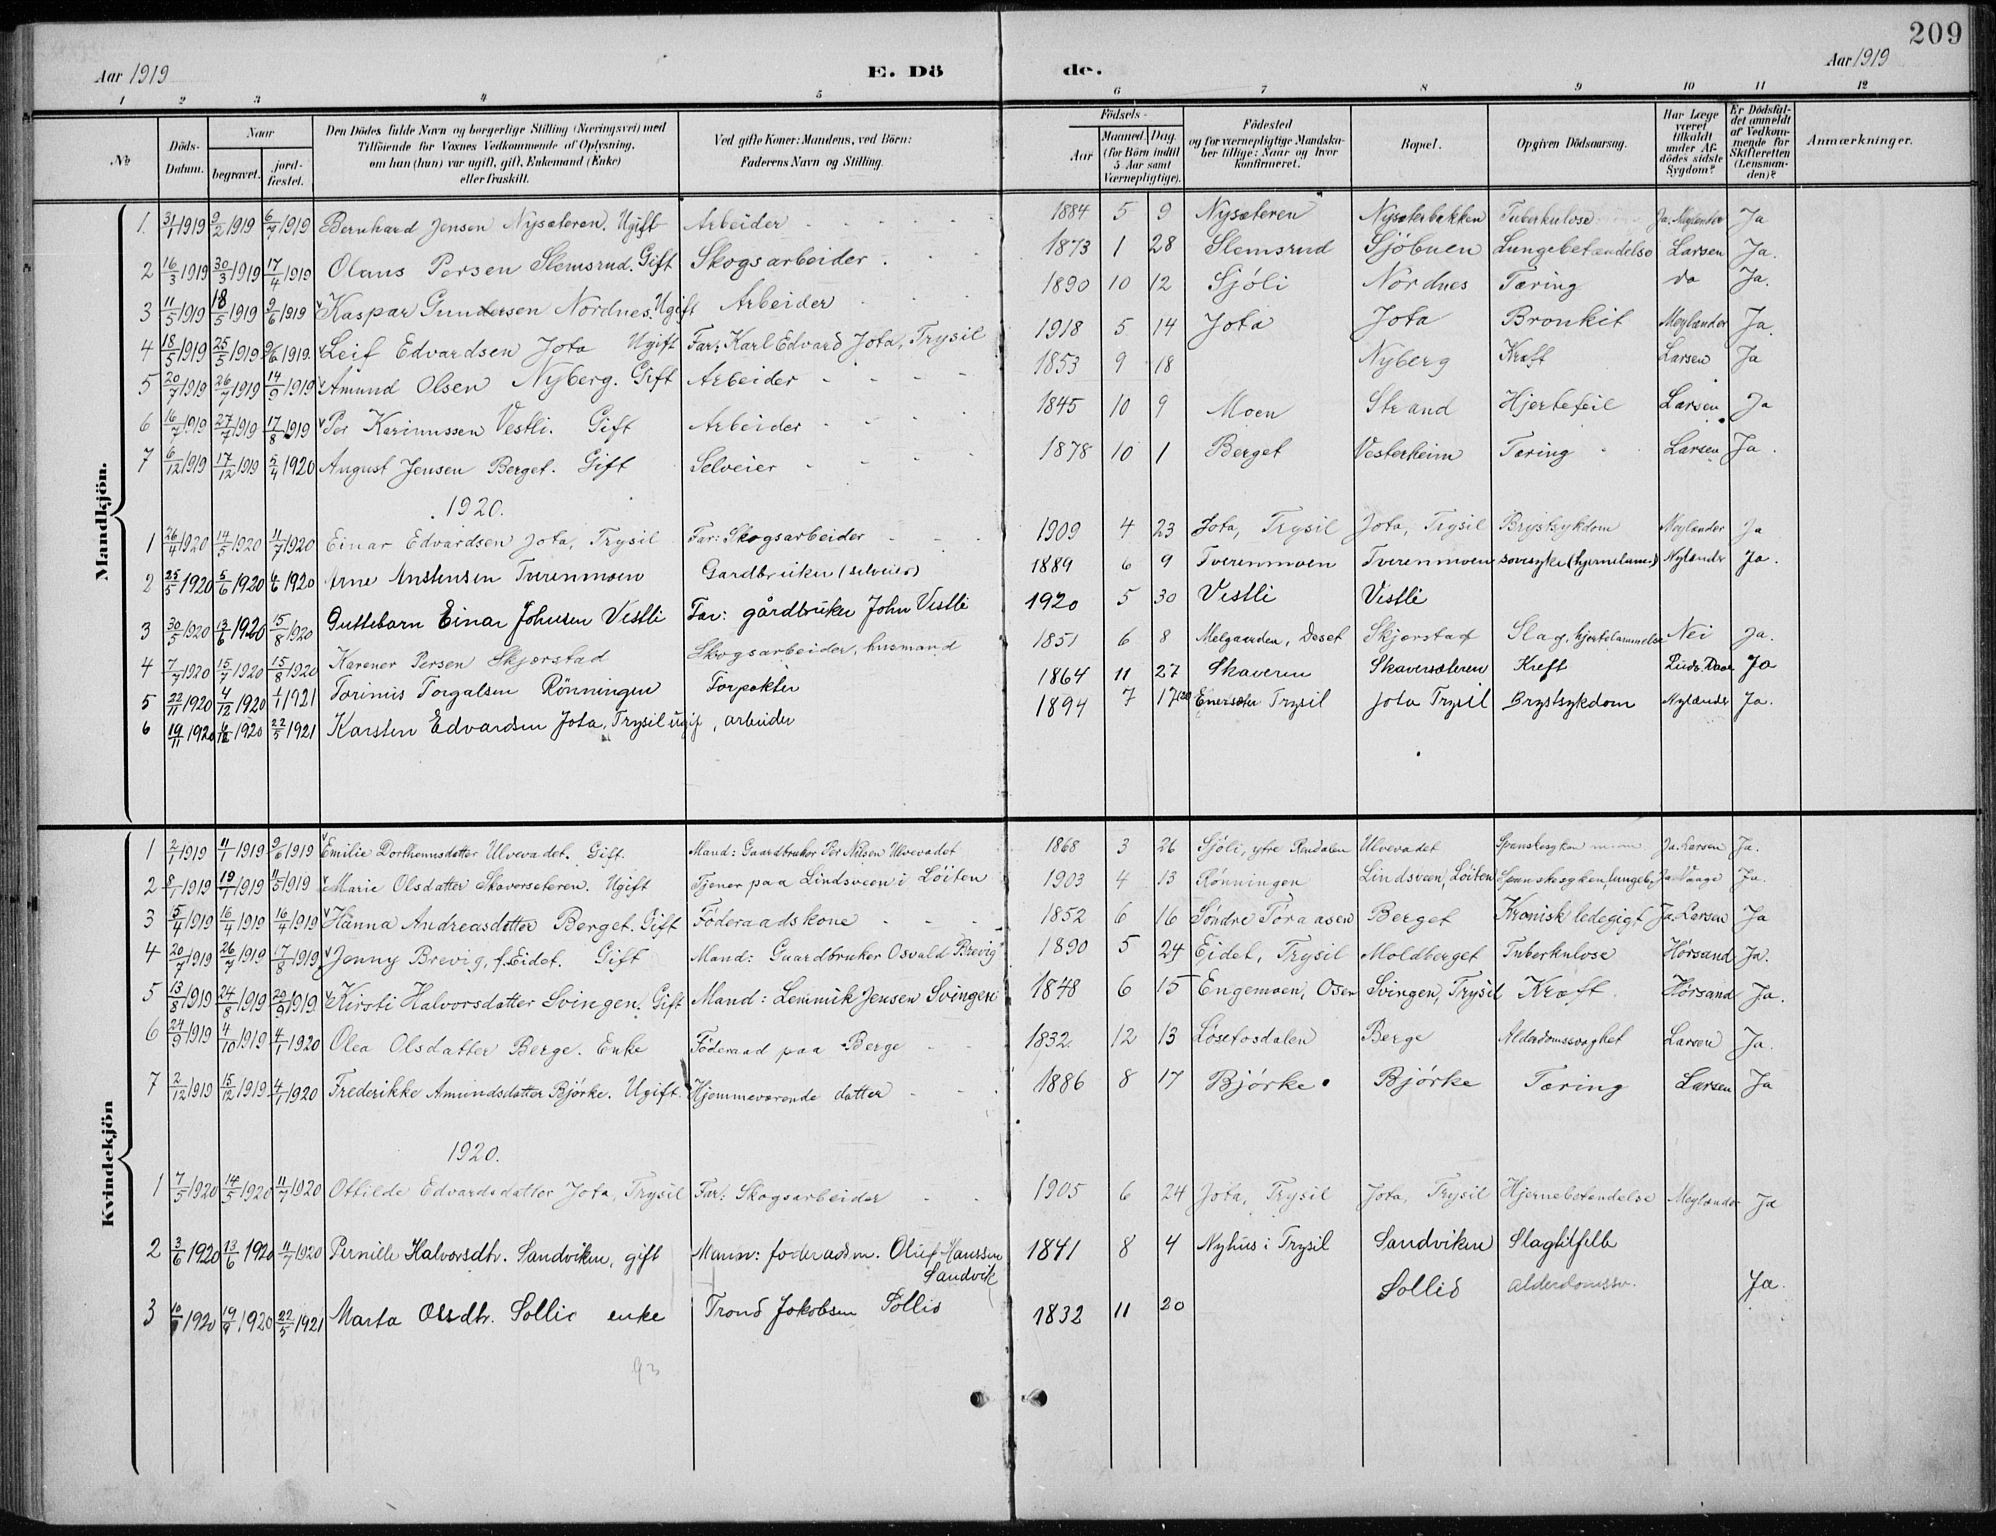 209
Aar 1919 E. Dö de. Aar 1919
1 2 3 4 5 6 7 8 9 10 11 12
No Döds-Datum. Naar begravet. jordfæstet. Den Dödes fulde Navn og borgerlige Stilling (Næringsvei) med Tilföiende for Voxnes Vedkommende af Oplysning, om han (hun) var ugift, gift, Enkemand (Enke) eller fraskilt. Ved gifte Koner: Mandens, ved Börn: Faderens Navn og Stilling. Födsels- Aar Maaned. Dag. (for Börn indtil 5 Aar samt Værnepligtige). Födested og for værnepligtige Mandskaber tillige: Naar og hvor konfirmeret. Bopæl. Opgiven Dödsaarsag. Har Læge været tilkaldt under Afdödes sidste Sygdom? Er Dödsfaldet anmeldt af Vedkommende for Skifteretten (Lensmanden)? Anmærkninger.
Mandkjön.
1. 31/1 1919 9/2 1919 6/7 1919 Bernhard Jensen Nysæteren. Ugift Arbeider 1884 5 9 Nysæteren Nysæterbakken Tuberkulose Ja. Meylænder Ja
2 16/3 1919 30/3 1919 17/4 1919 Olaus Persen Slemsrud. Gift Skogsarbeider 1873 1 28 Slemsrud Sjöbuen Lungebetændelse Larsen Ja.
3 11/5 1919 18/5 1919 9/6 1919 Kaspar Gundersen Nordnes. Ugift Arbeider 1890 10 12 Sjöli Nordnes Tæring do Ja.
4 18/5 1919 25/5 1919 9/6 1919. Leif Edvardsen Jota Ugift Far: Karl Edvard Jota, Trysil 1918 5 14 Jota Jota Bronkit Meylænder Ja.
5 20/7 1919 26/7 1919 14/9 1919 Amund Olsen Nyberg. Gift Arbeider 1853 9 18 Nyberg Kræft Larsen Ja
6 16/7 1919 27/7 1919 17/8 1919 Per Karinussen Vestli. Gift Arbeider 1845 10 9 Moen Strand Hjertefeil Larsen Ja
7 6/12 1919 17/12 1919 5/4 1920 August Jensen Berget. Gift Selveier 1878 10 1 Berget Vesterheim Tæring Larsen Ja.
1920.
1 26/4 1920 14/5 1920 11/7 1920 Einar Edvardsen Jota, Trysil Far: Skogsarbeider 1909 4 23 Jota, Trysil Jota, Trysil Brystsykdom Meylænder Ja
2 25/5 1920 5/6 1920 4/6 1920 Arne Anstensen Tverenmoen Gardbruiker (selveier) 1889 6 9 Tverenmoen Tverenmoen sovesyke (hjernelam.) Nylænder Ja.
3 30/5 1920 13/6 1920 15/8 1920 Guttebarn Einar Johnsen Vestli Far: gårdbruker John Vestli 1920 5 30 Vestli Vestli
4 7/7 1920 15/7 1920 15/8 1920 Karener Persen Skjærstad Skogsarbeider, husmand 1851 6 8 Melgaarden, Deset Skjærstad Slag, hjertelammelse Nei Ja.
5 22/11 1920 4/12 1920 1/1 1921 Torinus Torgalsen Rönningen Forpakter 1864 11 27 Skaveren Skaversæteren Kreft Ja
6 19/11 1920 4/12 1920 22/5 1921 Karsten Edvardsen Jota, Trysil ugif, arbeider 1894 7 17 Enersæter Trysil Jota Trysil Brystsykdom Nylænder Ja.
Kvindekjön
1 2/1 1919 11/1 1919 9/6 1919 Emilie Dorthennsdatter Ulvevadet. Gift. Mand: Gaardbruker Per Nilsen Ulvevadet 1868 3 26 Sjöli, ytre Rendalen Ulvevadet Spanskesyken Ja. Larsen Ja.
2 8/1 1919 19/1 1919 11/5 1919 Marie Olsdatter Skaversæteren. Ugift Tjener paa Lindsveen i Löiten 1903 4 13 Rönningen Lindsveen, Löiten Spanskesyken, lungebt. Ja Vaage Ja
3 5/4 1919 16/4 1919 16/4 1919 Hanna Andreasdatter Berget. Gift Föderaadskone 1852 6 16 Söndre Toraasen Berget Kronisk ledegigt Ja. Larsen Ja
4 20/7 1919 26/7 1919 17/8 1919 Jenny Brevig, f. Eidet. Gift Mand: Gaardbruker Osvald Brevig 1890 5 24 Eidet, Trysil Moldberget Tuberkulose Hörsand Ja.
5 13/8 1919 24/8 1919 20/9 1919. Kirsti Halvorsdatter Svingen. Gift Mand: Lemmik Jensen Svingen 1848 6 15 Engemoen, Osen Svingen, Trysil Kræft. Hörsand Ja.
6 24/9 1919 4/10 1919 4/1 1920 Olea Olsdatter Berge. Enke Föderaad paa Berge 1832. 12 13 Lösetosdalen Berge Alderdomssvaghet Larsen Ja.
7 2/12 1919 15/12 1919 4/1 1920 Frederikke Amundsdatter Björke. Ugift. Hjemmeværende datter 1886 8 17 Björke. Björke Tæring Larsen Ja
1920.
1 7/5 1920 14/5 1920 11/7 1920 Ottilde Edvardsdatter Jota, Trysil Far: Skogsarbeider 1905 6 24 Jota, Trysil Jota, Trysil Hjernebetændelse Meylænder Ja
2 3/6 1920 13/6 1920 11/7 1920 Pernille Halvorsdtr. Sandviken, gift Mann: foderadsm. Oluf Hanssen Sandvik 1841 8 4 Nyhus i Trysil Sandviken Slagtilfelle
3 10/9 1920 19/9 1920 22/5 1921 Marta Olsdtr. Sollie enke Trond Jakobsen Sollid 1832 11 20 Sollid alderdomssv. Ja.
93